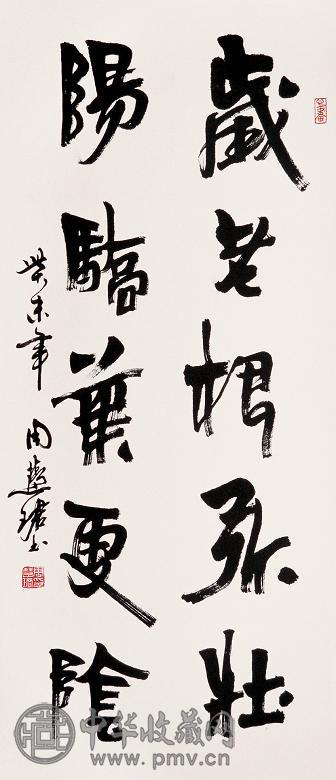 歲老根弥壯
陽驕葉更陰
癸未年 周慧珺书
中华收藏网
www.pmv.cn